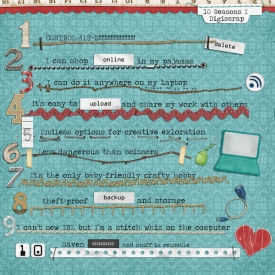 10 Reasons I
Digiscrap
1 CONTROL-ALT-Z!!!!!!!!!!!!!! delete
2 I can shop online in my pajamas
3 I can do it anywhere on my laptop
4 It's easy to upload and share my work with others
5 Endless options for creative exloration
6 Less dangerous than scissors
7 It's the only baby-friendly crafty hobby
8 theft-proof backup and storage
9 I can't sew IRL but I'm a stitch whiz on the computer
10 Saves and stuff is reusable